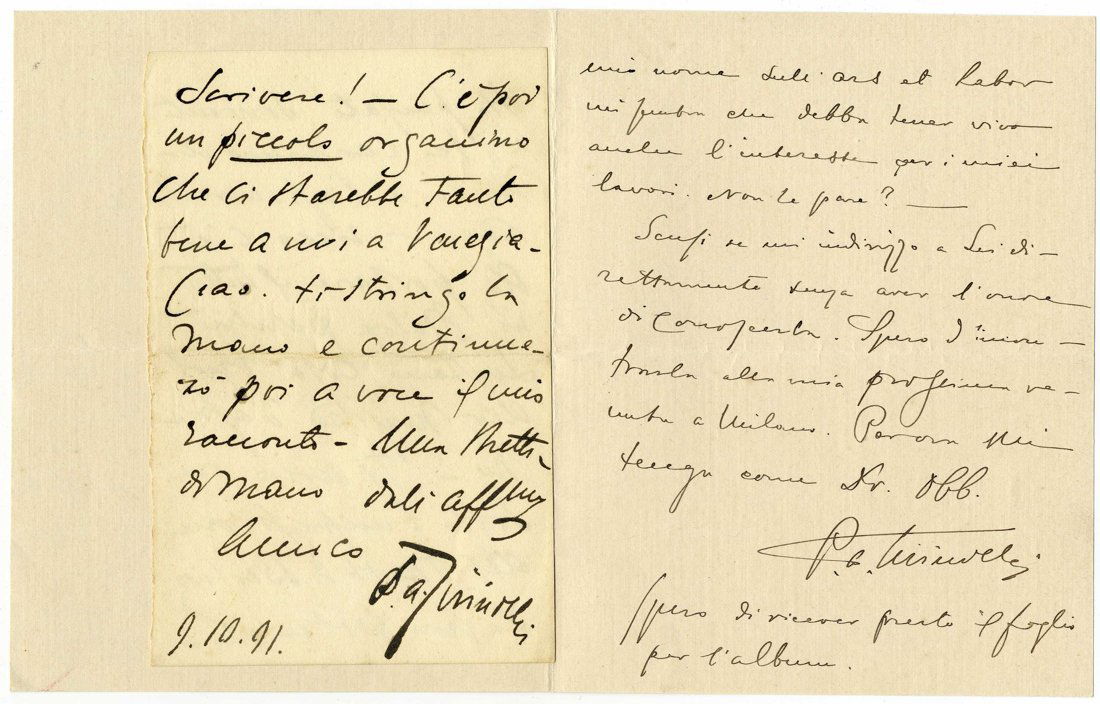 Scrivere! — C'è poi
un piccolo organino
che ci starebbe tanto
bene a noi a Venezia -
Ciao. ti stringo la
mano e continue-
rò poi a voce il mio
racconto - Una stretta
di mano dall' affmo
Amico
P. A. Tirindelli
9.10.91.
mio nome sull' ars et labor
mi sembra che debba tener vivo
anche l'interesse per i miei
lavori. Non Le pare? —
Scusi se mi indirizzo a Lei di-
rettamente senza aver l'onore
di conoscerla. Spero d'incon-
trarla alla mia prossima ve-
nuta a Milano. Per ora mi
tenga come Dv. Obb.
P. A. Tirindelli
Spero di ricever presto il foglio
per l'album.